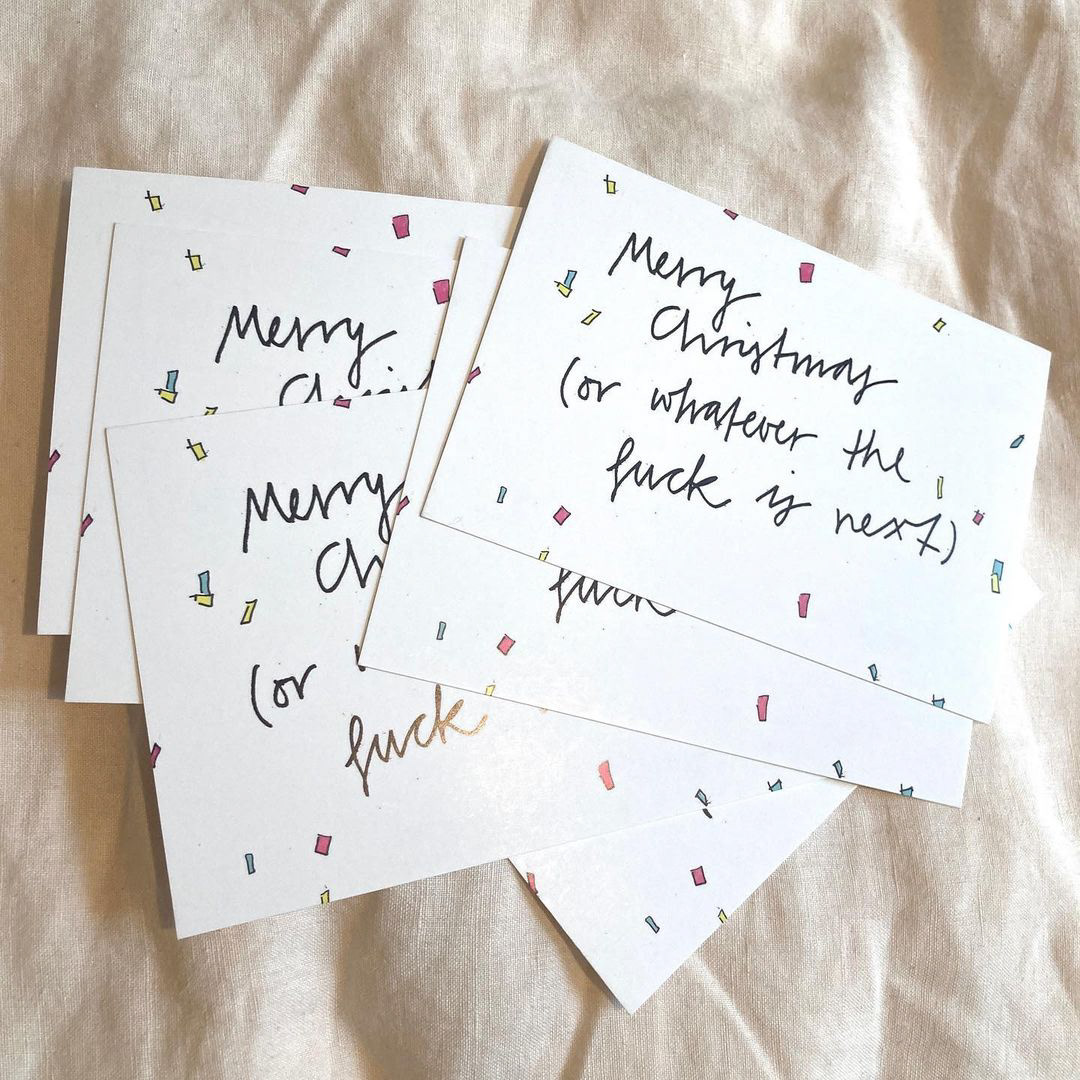 Merry
Christmas
(or whatever the
fuck is next)
Merry
Merry
Ch
(or
fuck
fuck